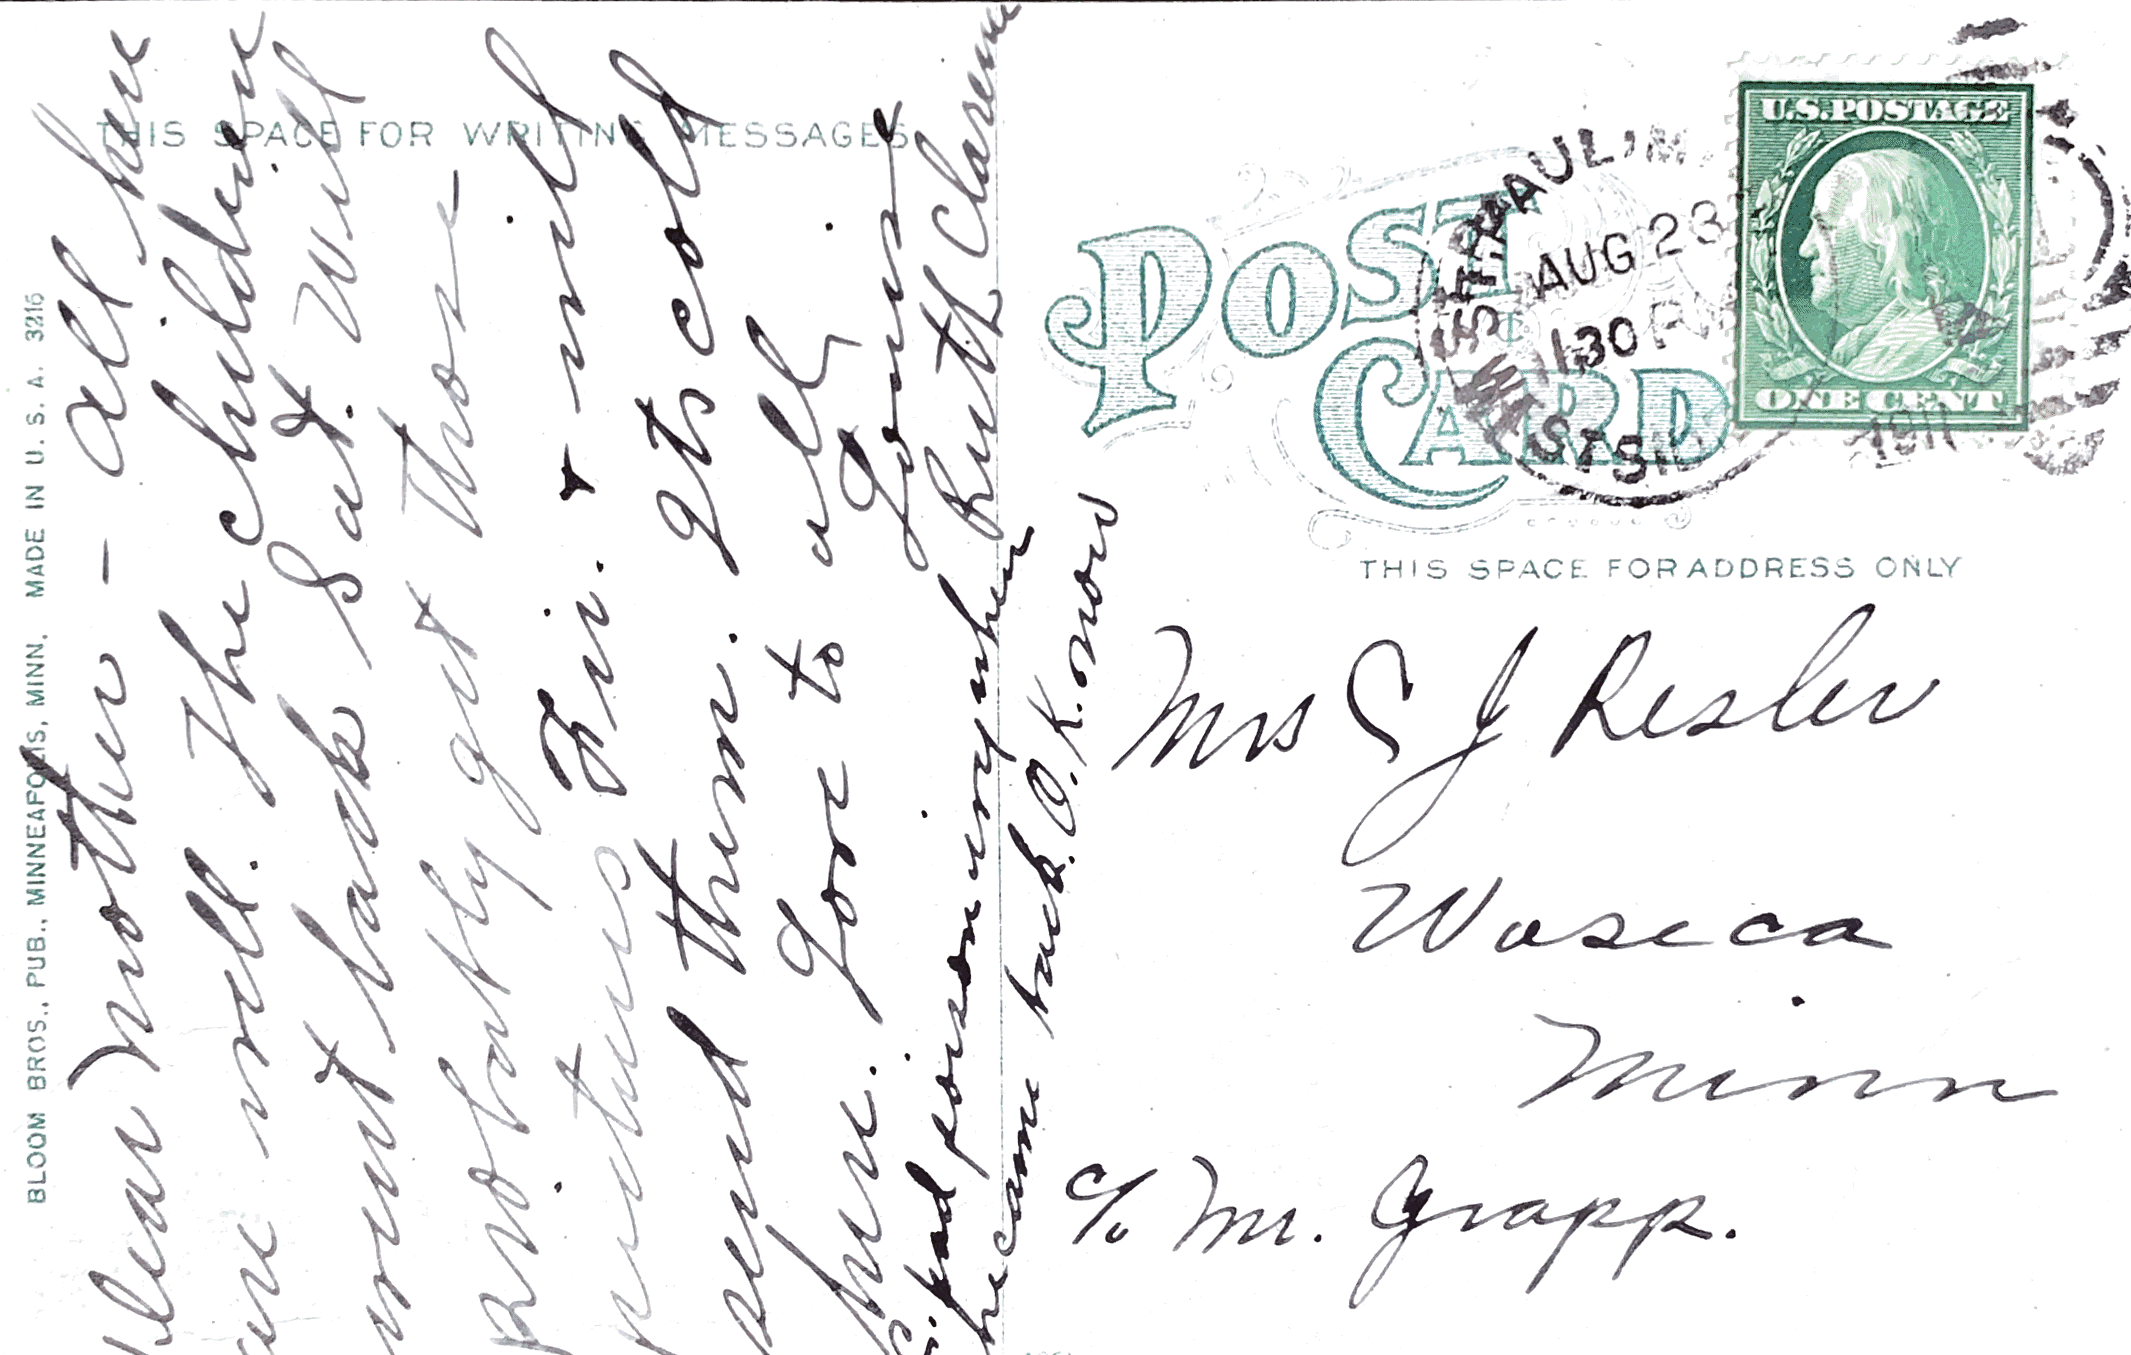 THIS SPACE FOR WRITING MESSAGES
Dear Mother – All here
are well. The children
went back Sat. Will
probably get those
pictures Fri. + will
send them. Its cold
here. Love to all
Louise
Ruth Clarence
had poison ivy when
he came back. O.K. now
BLOOM BROS., PUB., MINNEAPOLIS, MINN. MADE IN U. S. A. 3216
POST CARD
ST. PAUL, M
AUG 23
130 P
WEST SI
1911
U.S. POSTAGE
ONE CENT
THIS SPACE FOR ADDRESS ONLY
Mrs C J Resler
Waseca
Minn
c/o Mr. Grapp.